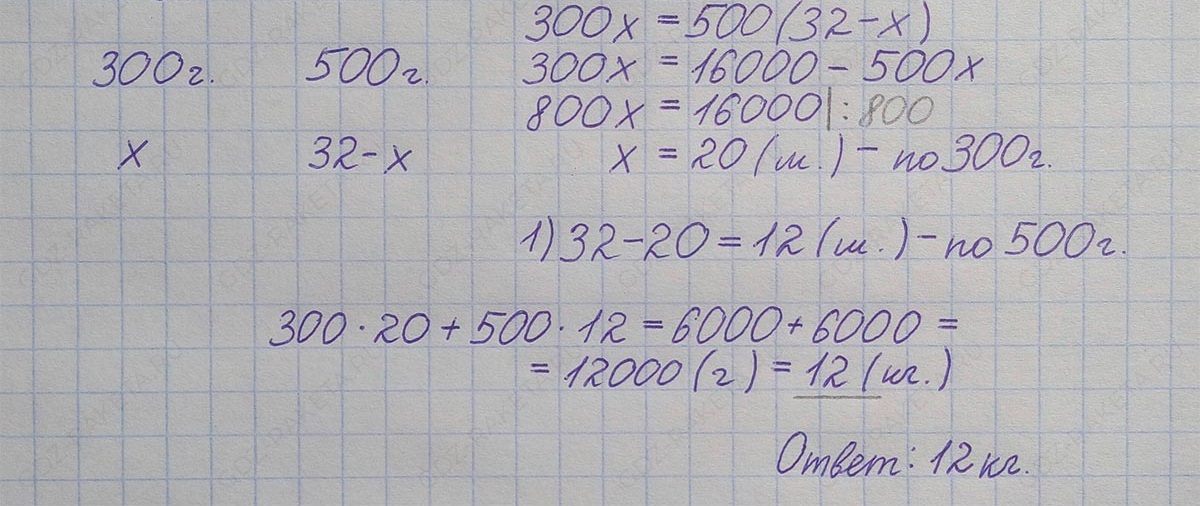 300x = 500(32-x)
300г. 500г. 300x = 16000 - 500x
800x = 16000|:800
x 32-x x = 20 (ш.) - по 300г.
1) 32-20 = 12 (ш.) - по 500г.
300·20 + 500·12 = 6000 + 6000 =
= 12000 (г) = 12 (кг.)
Ответ: 12 кг.